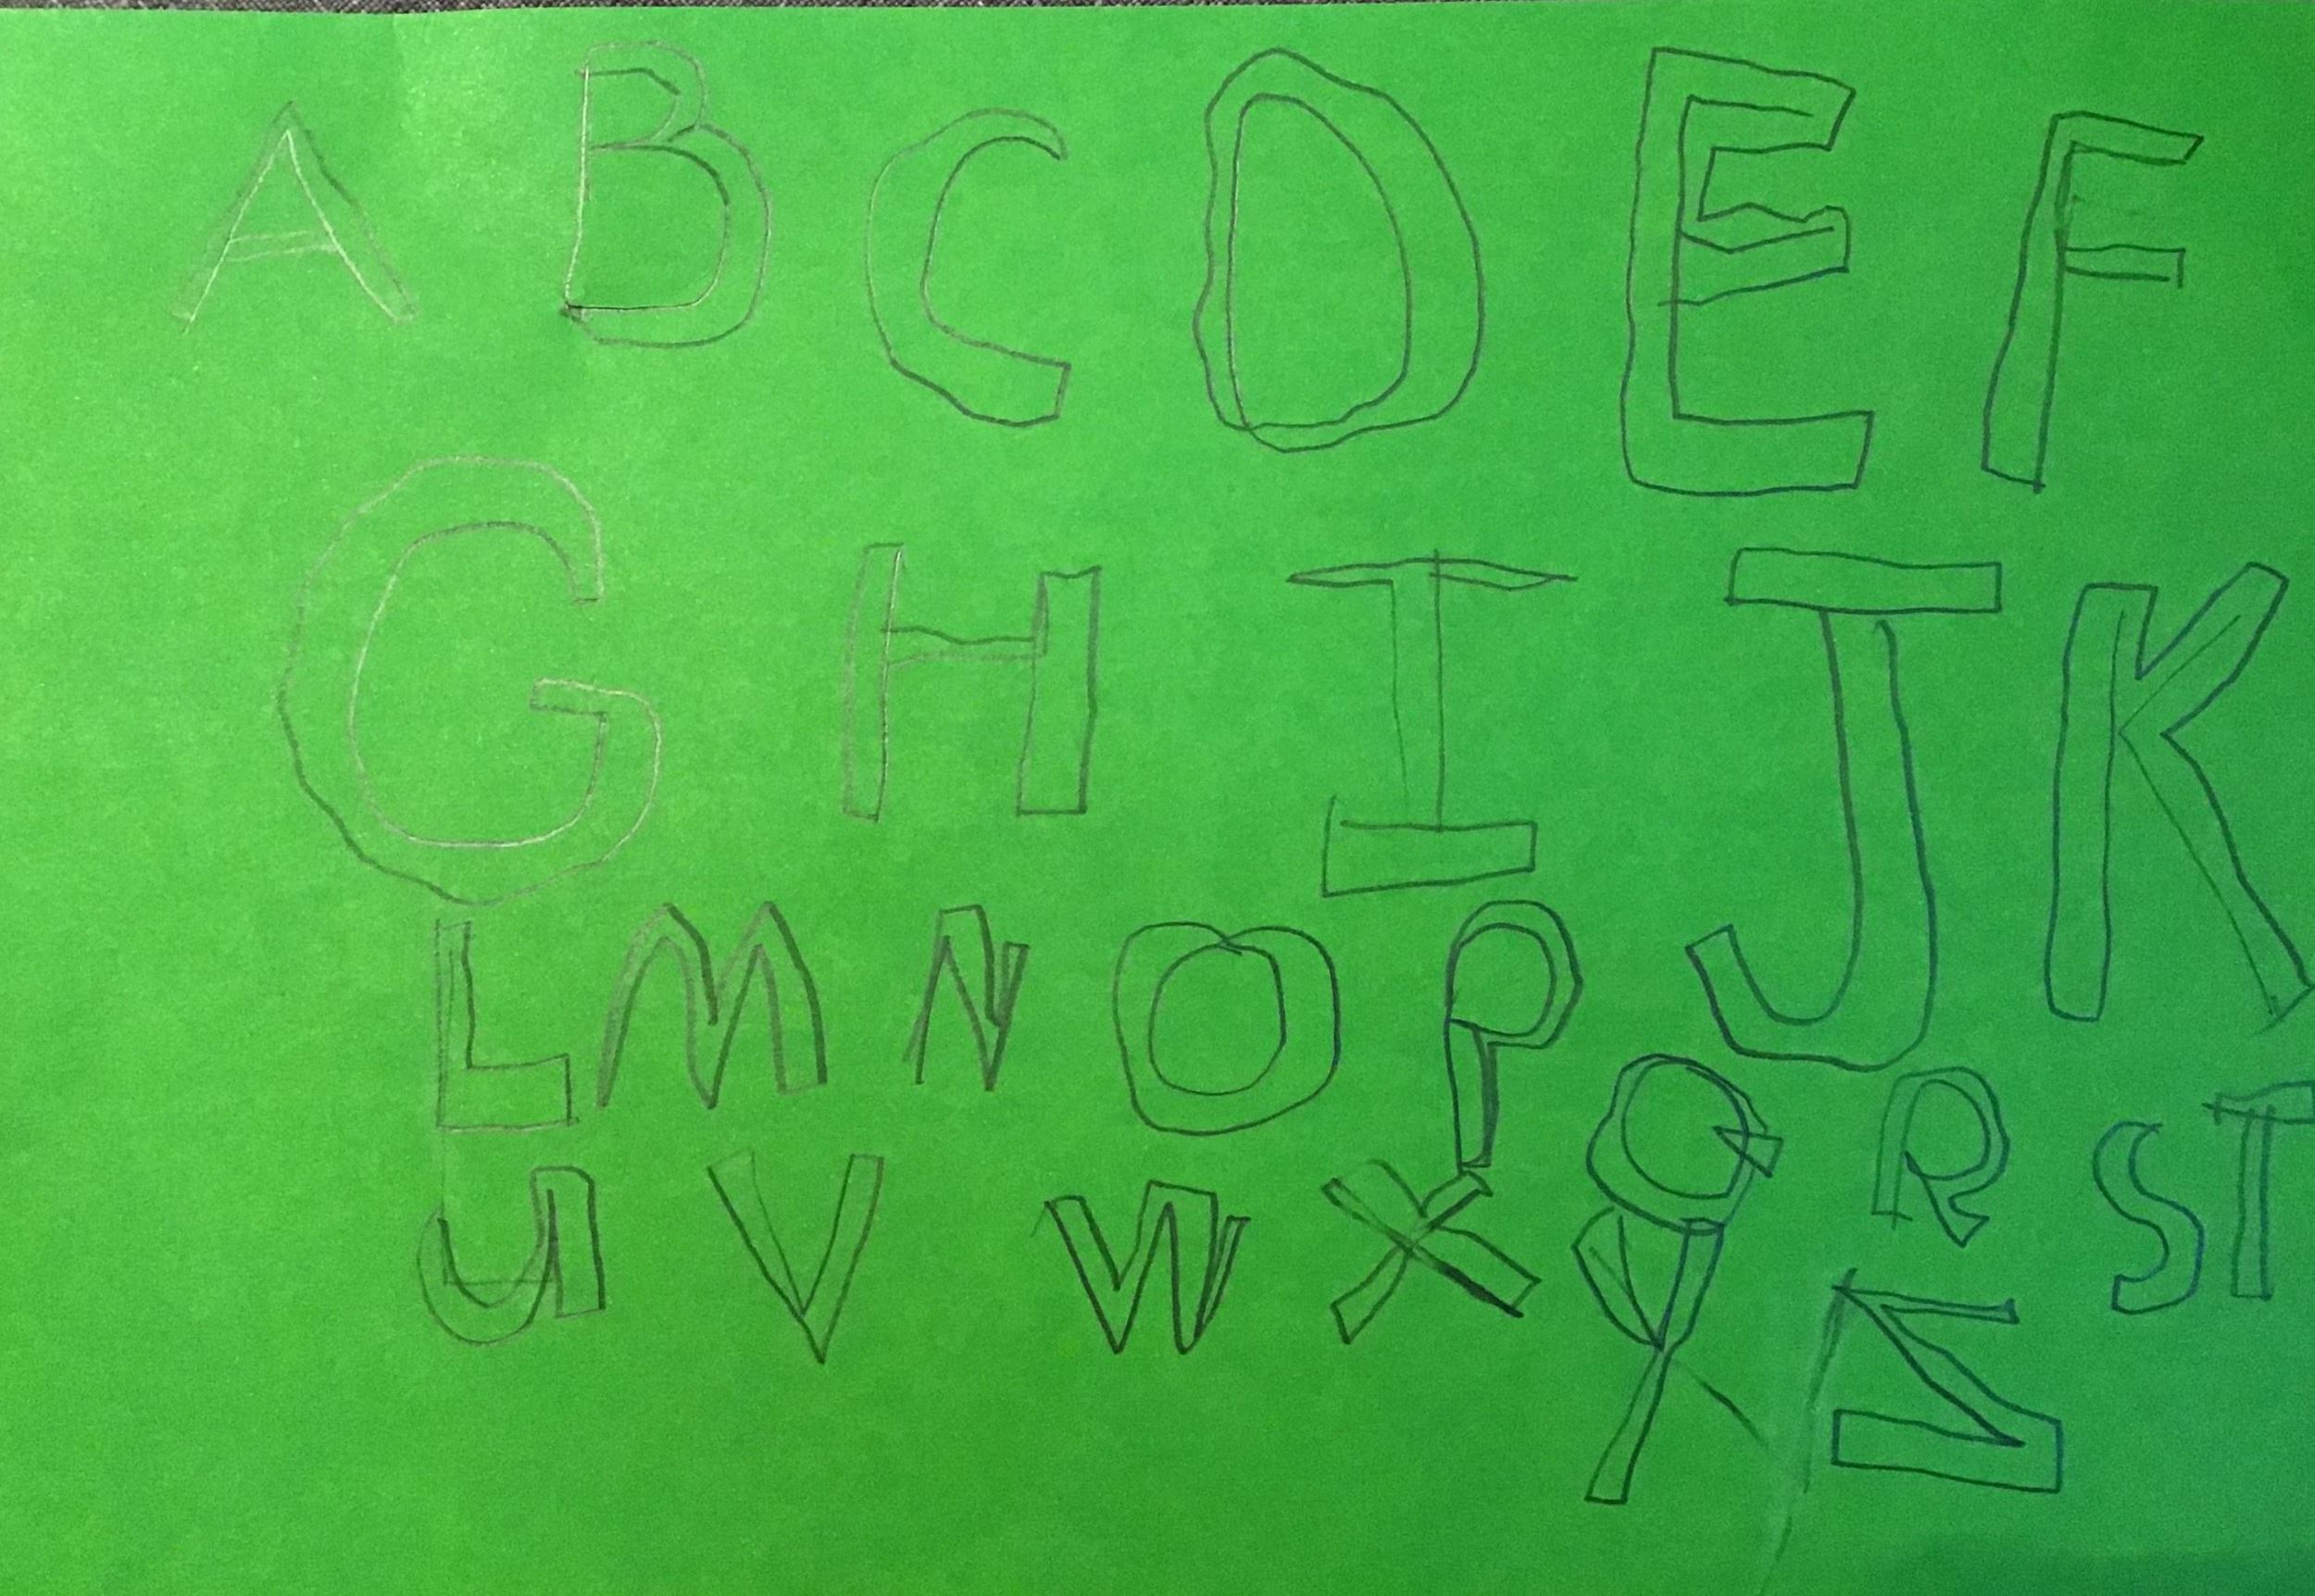 A B C D E F
G H I J K
L M N O P Q R S T
U V W X Y Z